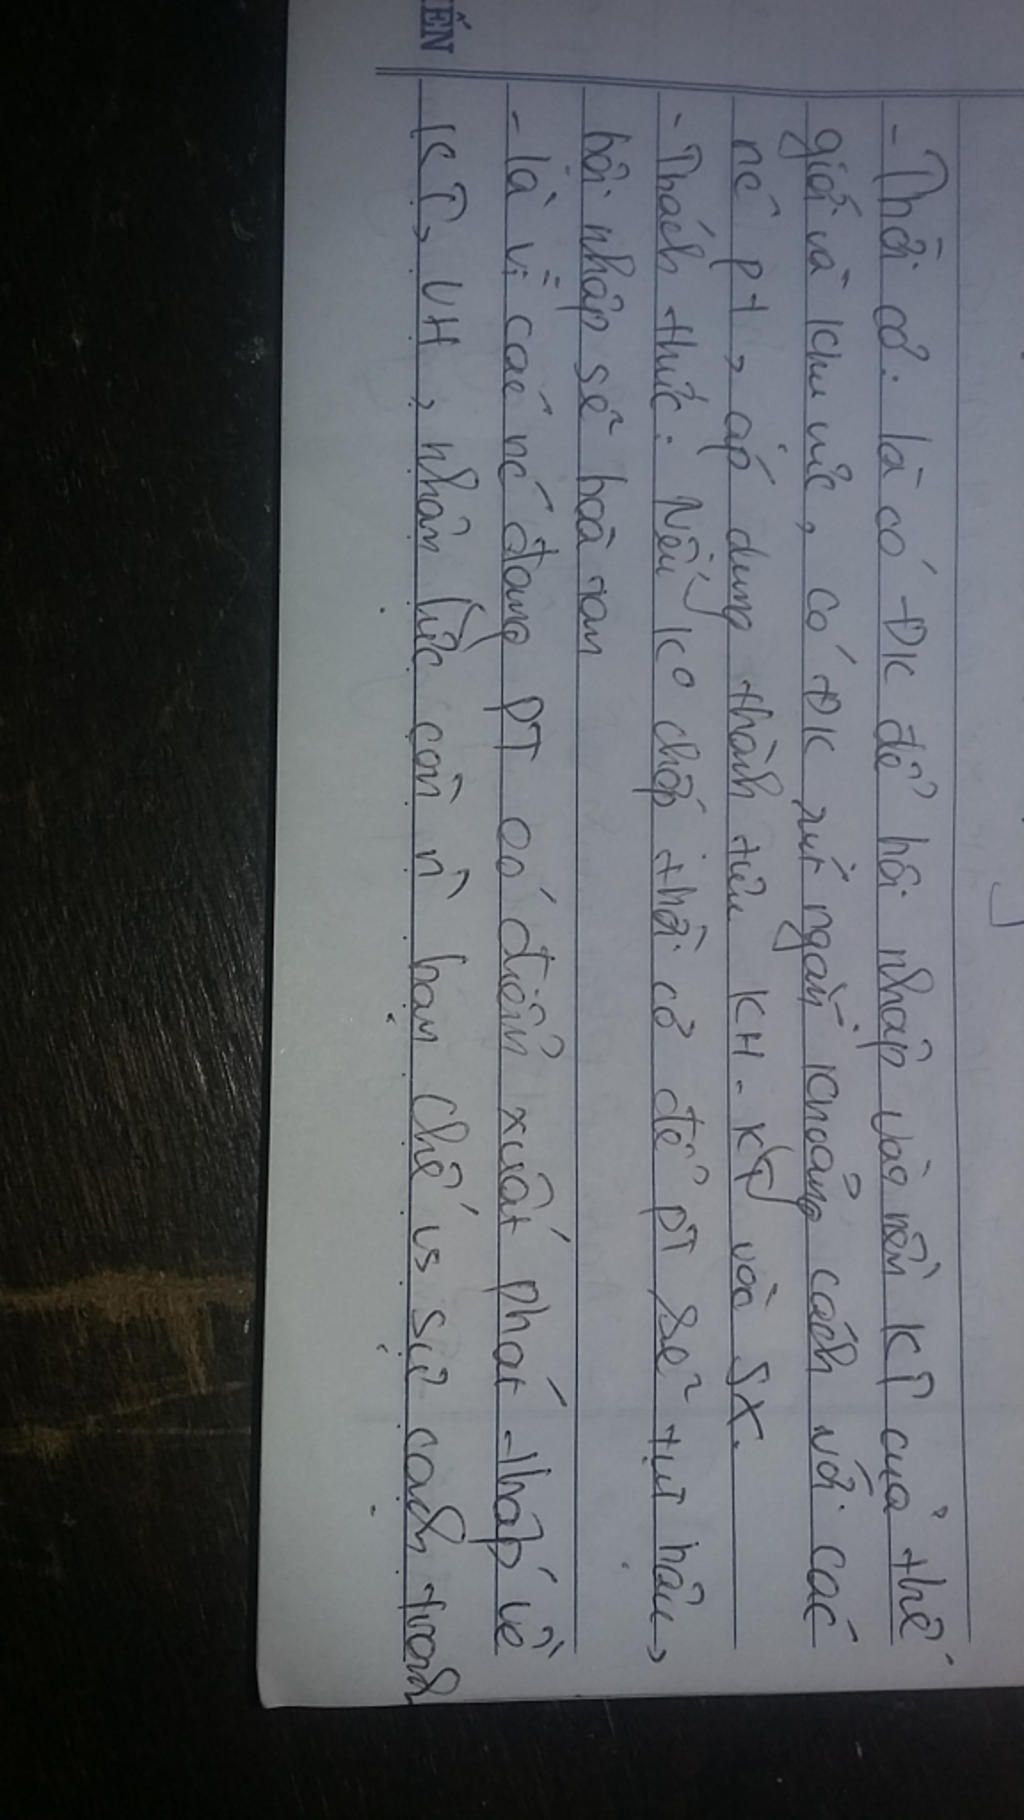 ẾN
- Thời cơ: là có ĐK để hội nhập vào nền KT của thế
giới và khu vực, có ĐK rút ngắn khoảng cách với các
nc pt, áp dụng thành tựu KH - KT vào SX.
- Thách thức: Nếu ko chớp thời cơ để PT sẽ tụt hậu,
hội nhập sẽ hoà tan
- là vì các nc đang PT có điểm xuất phát thấp về
KT, VH, nhân lực còn n` hạn chế vs sự cạnh tranh